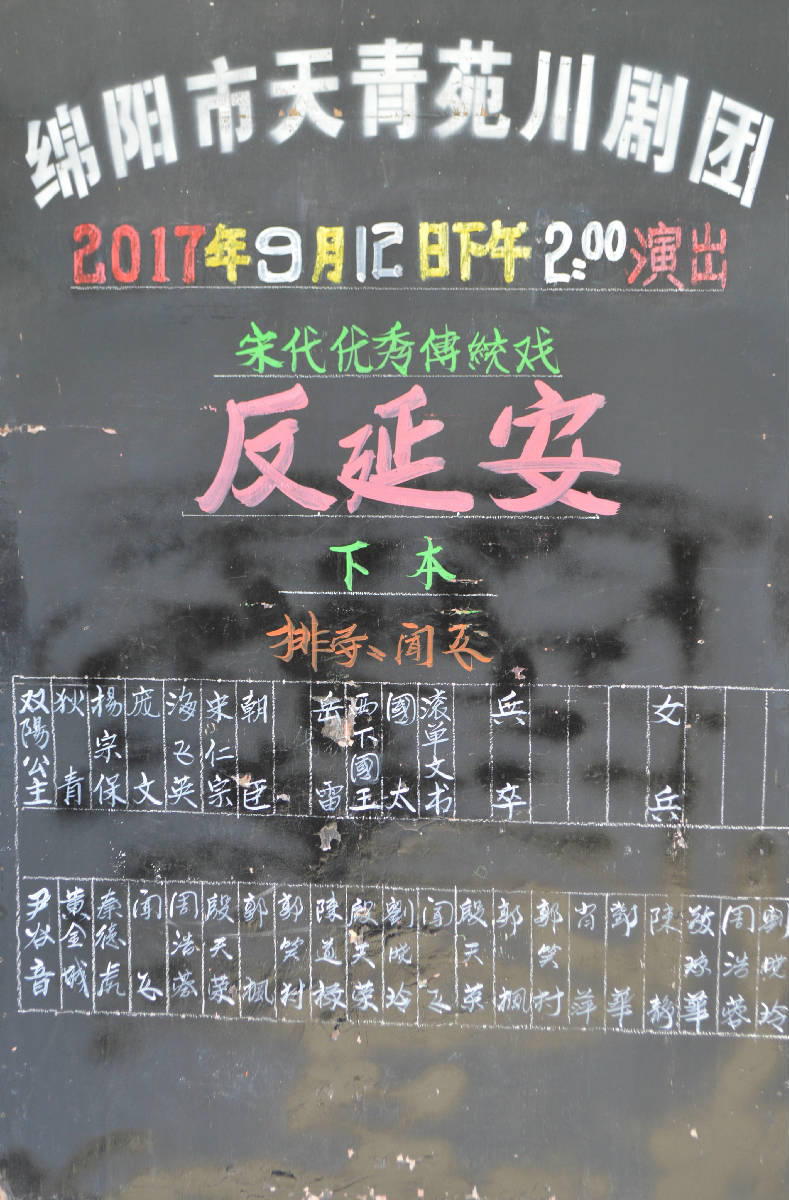 绵阳市天青苑川剧团
2017年9月12日下午2:00演出
宋代优秀傳統戏
反延安
下本
闻飞
双陽公主 狄青 楊宗保 庞文 海飞英 宋仁宗 朝臣 岳雷 西下國王 國太 滚单文书 兵卒 女兵
尹谷音 黄金城 秦德虎 闻飞 周浩蓉 殷天荣 郭枫 郭笑村 陳道 殷天荣 劉晓玲 闻飞 殷天荣 郭枫 郭笑村 肖萍 鄧華 陳静 華 周浩蓉 劉晓玲